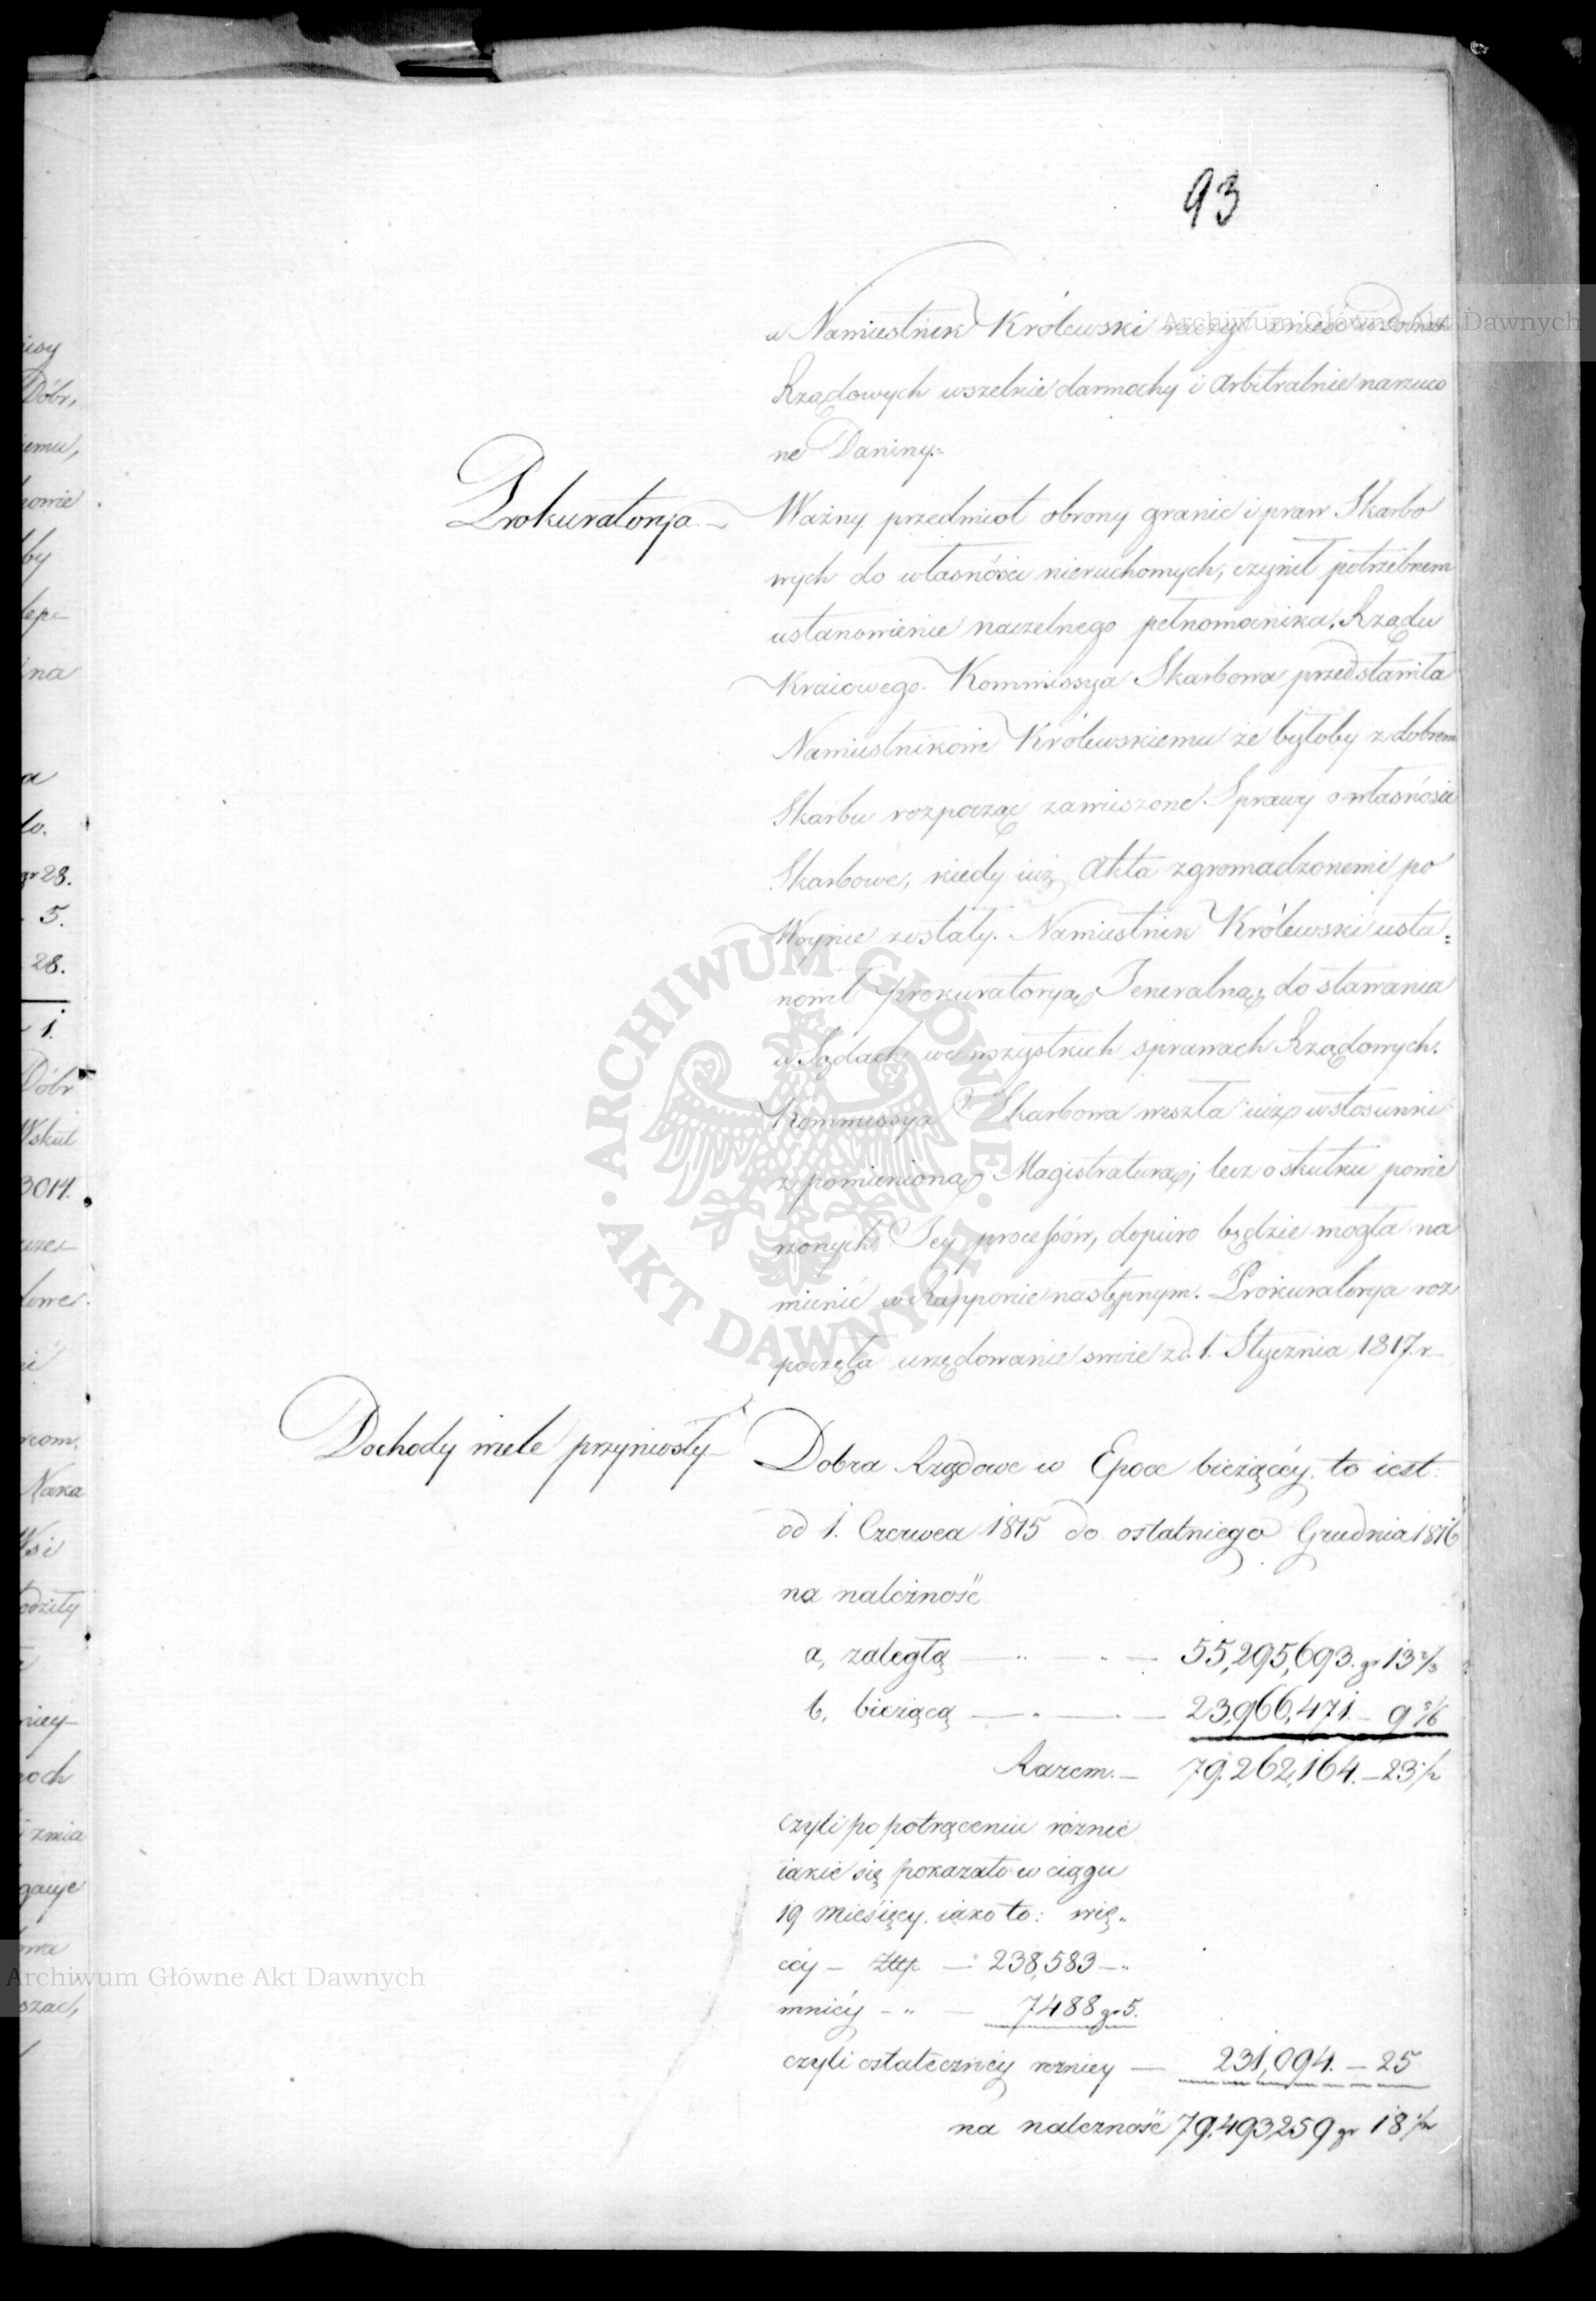 93
w Namiestnik Królewski raczył znieść w Dobrach
Rządowych wszelkie darmochy i arbitralnie narzuco
ne Daniny.=
Prokuratorja. –
Ważny przedmiot obrony granic i praw Skarbo
wych do własności nieruchomych, czynił potrzebnem
ustanowienie naczelnego pełnomocnika Rządu
Kraiowego. Kommissya Skarbowa przedstawiła
Namiestnikowi Królewskiemu że byłoby z dobrem
Skarbu rozpocząć zawieszone Sprawy o własności
Skarbowe, kiedy iuż Akta zgromadzonemi po
Woynie zostały. Namiestnik Królewski usta=
nowił Prokuratoryą Jeneralną, do stawania
w Sądach we wszystkich sprawach Rządowych.
Kommissya Skarbowa weszła iuż w stosunki
z pomienioną Magistraturą; lecz o skutku powie
rzonych Jey processów, dopiero będzie mogła na
mienić w Rapporcie następnym. Prokuratorya roz
poczęła urzędowanie swoie z d. 1. Stycznia 1817. r.
Dochody wiele przyniosły –
Dobra Rządowe w Epoce bieżącéy to iest:
od 1. Czerwca 1815 do ostatniego Grudnia 1816
na należność
a, zaległą — " — " — 55,295,693. gr 13 2/3
b, bieżącą — " — " — 23,966,471. – 9 5/6
Razem. – 79,262,164. – 23 1/2
czyli po potrąceniu różnic
iakie się pokazało w ciągu
19 miesięcy. iako to: wię„
céy – złp — 238,583 – „
mniéy – „ — 7488 gr 5.
czyli ostatecznéy rożnicy — 231,094. – 25
na należność 79,493,259 gr 18 1/2
iesy
Dóbr,
iemu,
na
gr 28.
5.
28.
1.
Dóbr
Wskut
3014.
Wsi
Archiwum Główne Akt Dawnych
Archiwum Główne Akt Dawnych
ARCHIWUM GŁÓWNE · AKT DAWNYCH ·